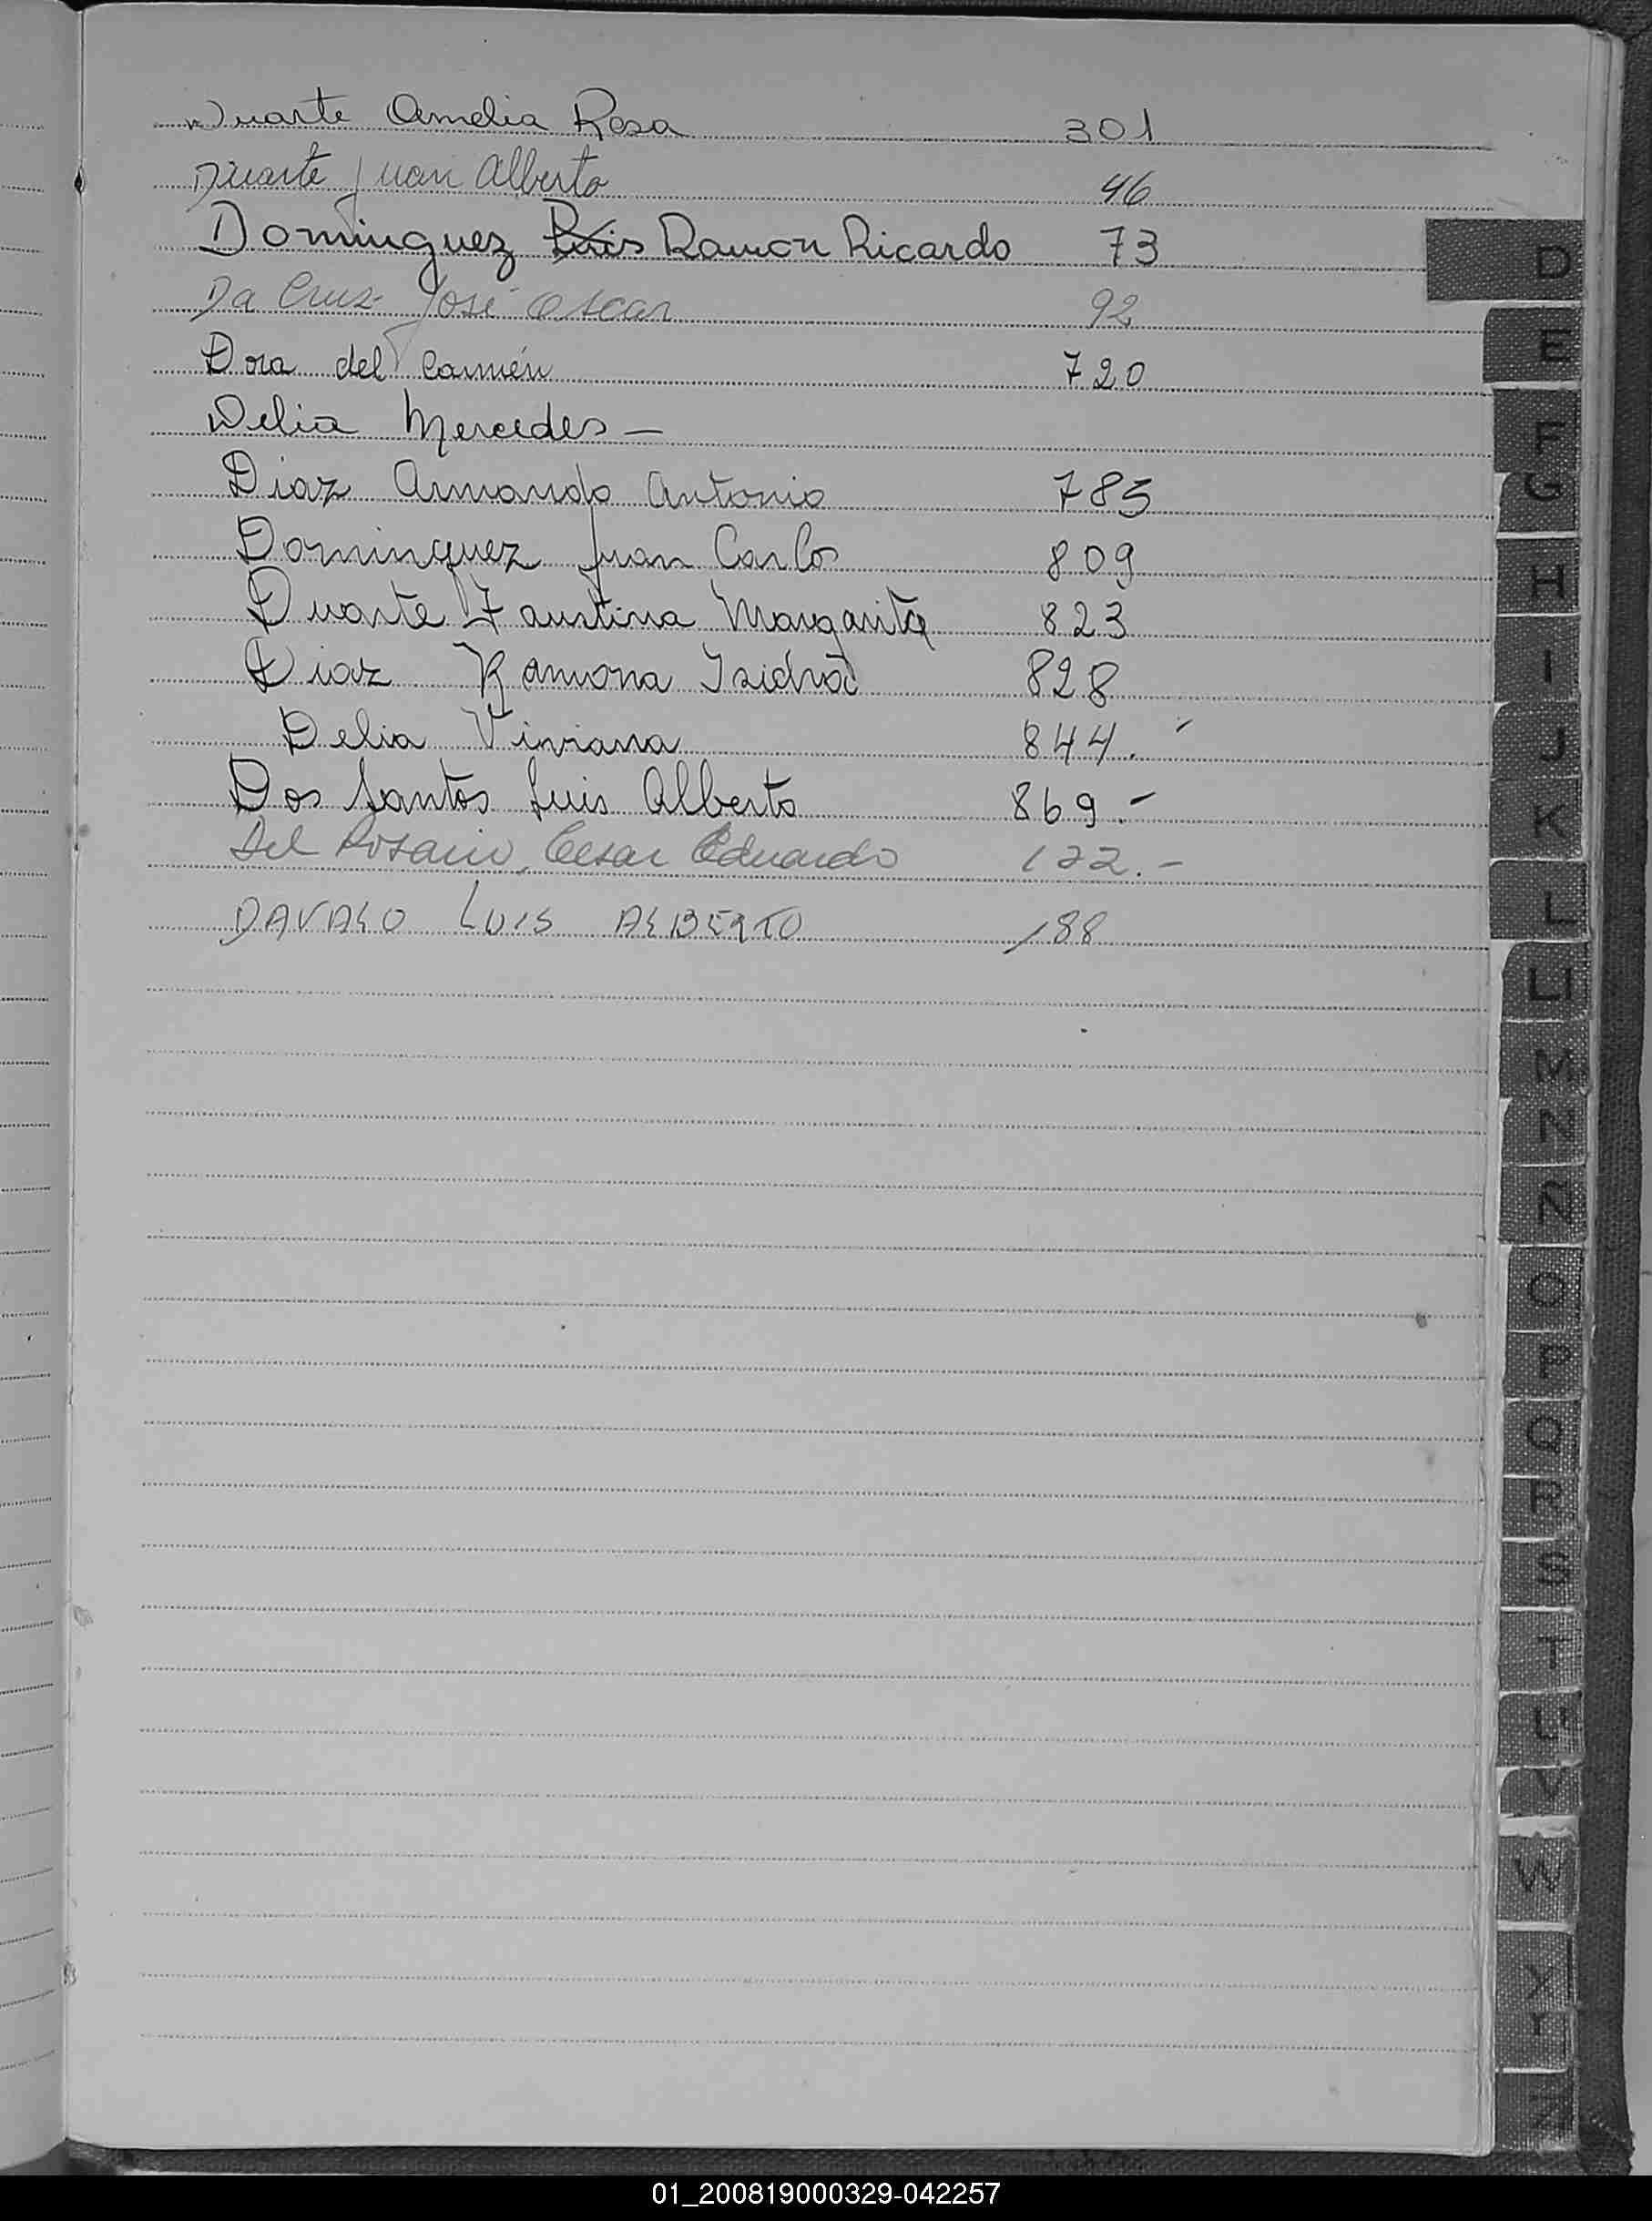 Duarte Amelia Rosa 301
Duarte Juan Alberto 46
Dominguez Luis Ramon Ricardo 73
Da Cruz José Oscar 92
Dora del Carmén 720
Delia Mercedes —
Diaz Armando Antonio 785
Dominguez Juan Carlos 809
Duarte Faustina Margarita 823
Diaz Ramona Isidra 828
Delia Viviana 844.-
Dos Santos Luis Alberto 869.-
Del Rosario, Cesar Eduardo 122.-
DAVALO LUIS ALBERTO 188
D
E
F
G
H
I
J
K
L
Ll
M
N
Ñ
O
P
Q
R
S
T
U
V
W
X
Y
Z
01_200819000329-042257